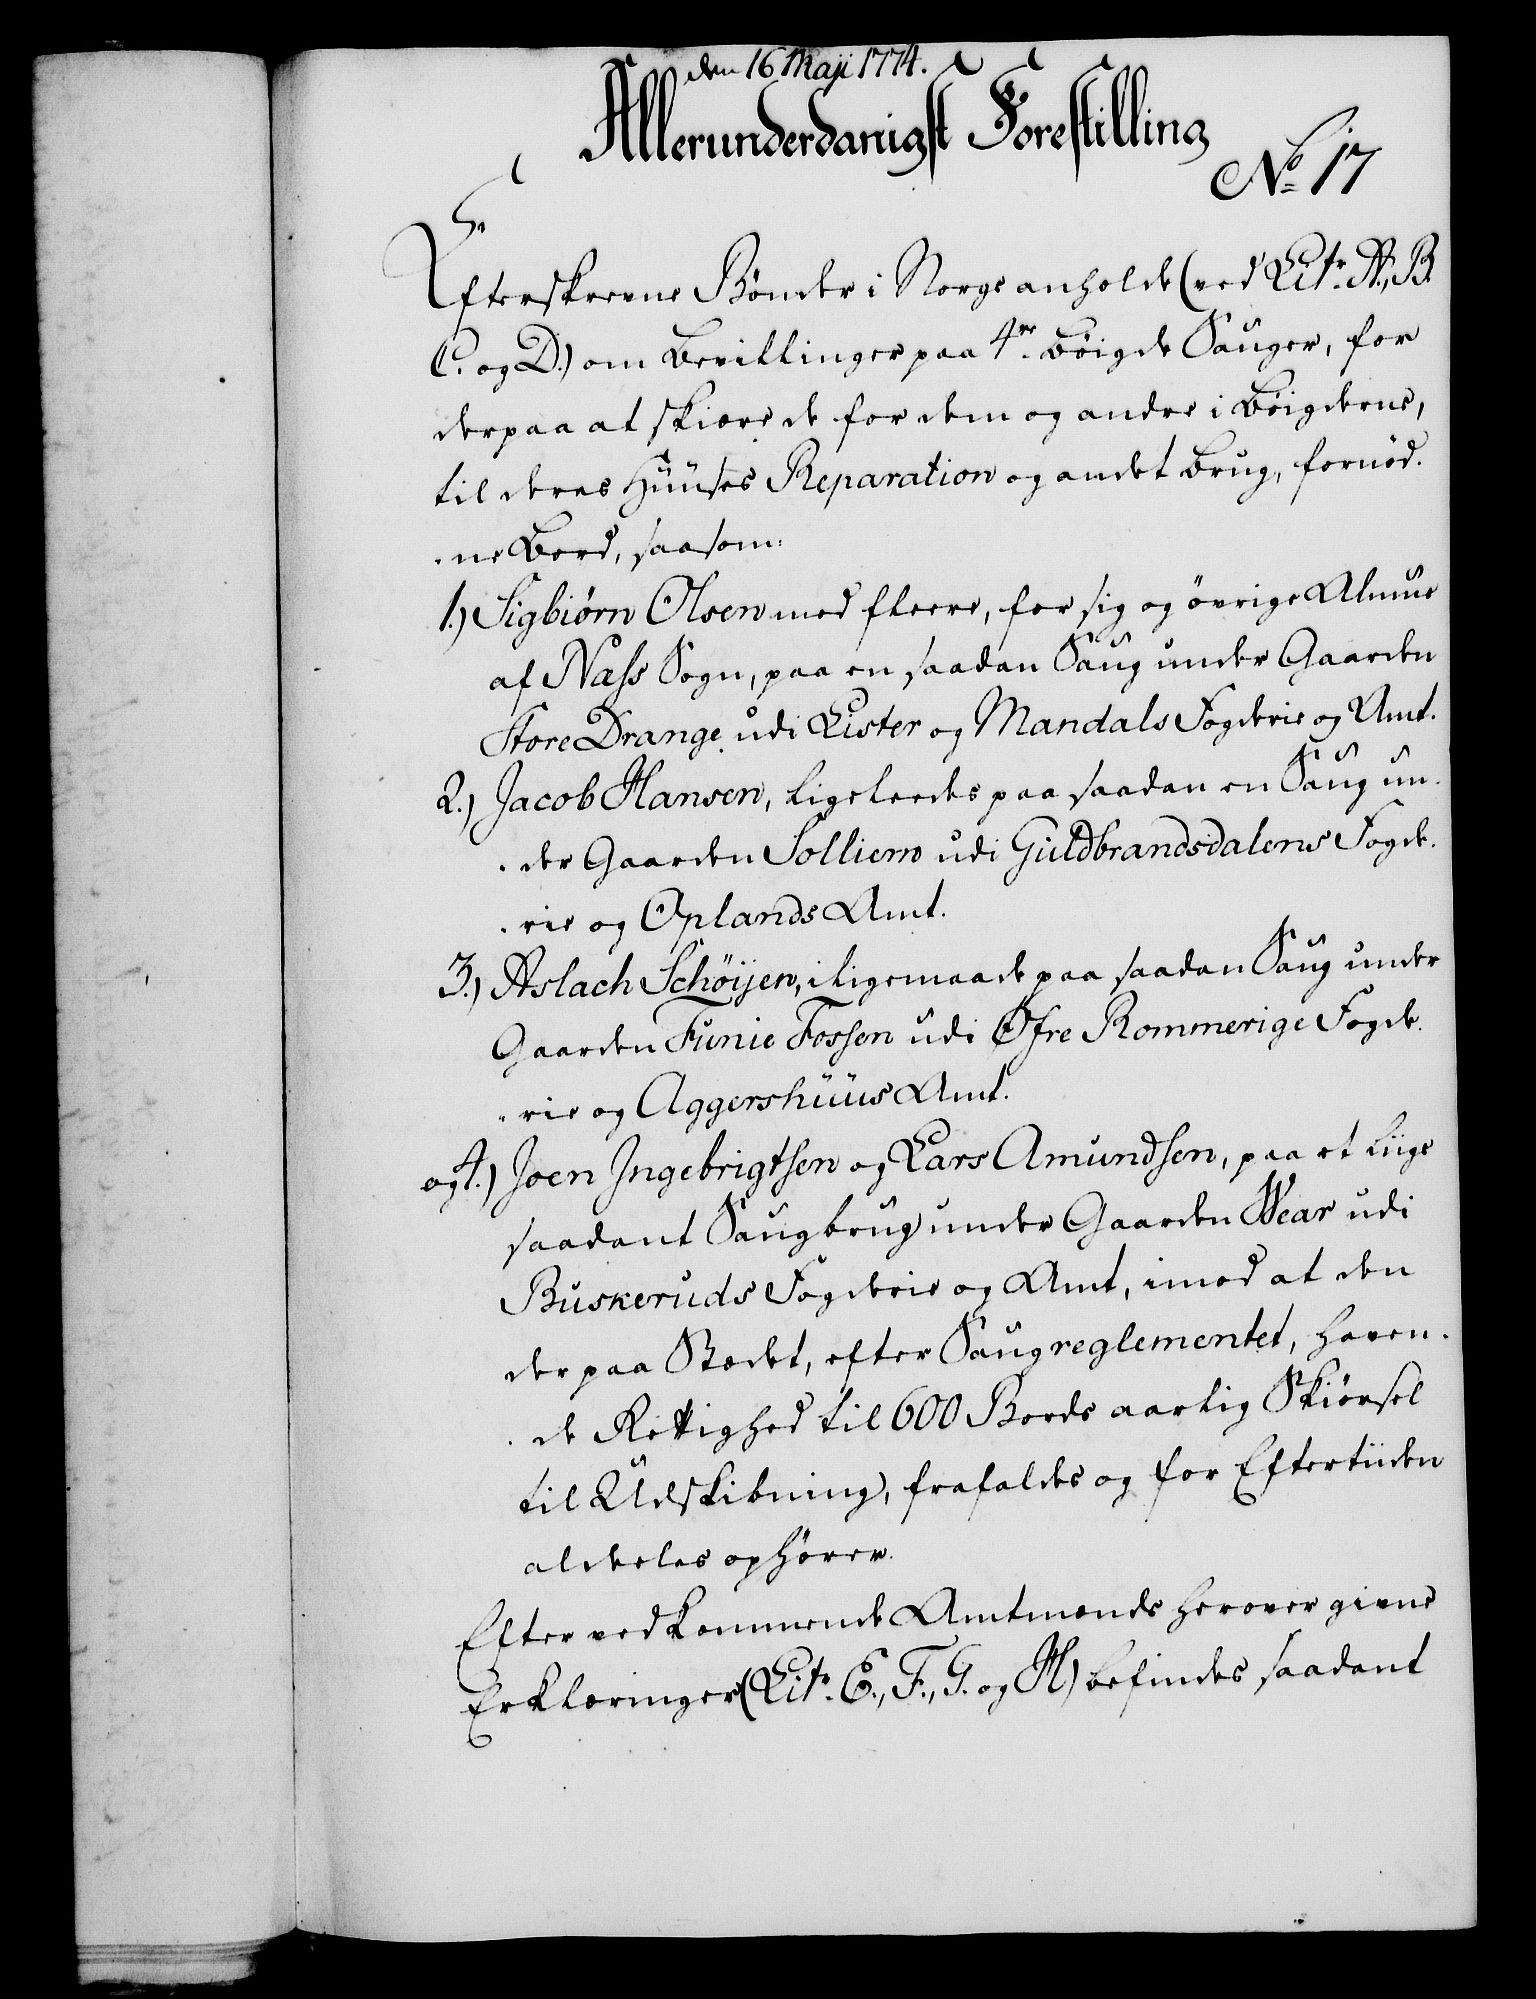 den 16 Maji 1774.
Allerunderdanigst Forestilling
No 17
Efterskrevne Bönder i Norge anholde (ved Litr. A., B.
C. og D.) om Bevillinger paa 4re böigde Sauger, for
derpaa at skiære de for dem og andre i Böigderne,
til deres Huuses Reparation og andet Brug, fornöd-
-ne Bord, saasom:
1.) Sigbiørn Olsen med fleere, for sig og övrige Almue
af Næss Sogn, paa en saadan Saug under Gaarden
Store Drange udi Lister og Mandals Fogderie og Amt.
2.) Jacob Hansen, ligeleedes paa saadan en Saug un-
-der Gaarden Solliem udi Guldbrandsdalens Fogde-
-rie og Oplands Amt.
3.) Aslach Schöijen, i ligemaade paa saadan Saug under
Gaarden Funie Fossen udi Øfre Rommerige Fogde-
-rie og Aggershuus Amt.
og 4.) Joen Ingebrigtsen og Lars Amundsen, paa et liige
saadant Saugbrug under Gaarden Wear udi
Buskeruds Fogderie og Amt, imod at den
der paa Stædet, efter Saugreglementet, haven-
-de Rettighed til 600 Bords aarlig Skiørsel
til Udskibning, frafaldes og for Eftertiiden
aldeeles ophörer.
Efter vedkommende Amtmænds herover givne
Erklæringer (Litr. E., F., G. og H) befindes saadant